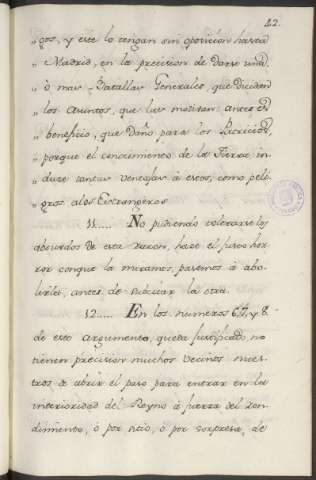 12.
gos, y este lo tengan sin oposicion hasta
„ Madrid, en la precision de darse una,
„ ò mas Batallas Generales, que deciden
„ los asuntos, que las motiban antes es
„ beneficio, que daño para los Patricios,
„ porque el conocimiento de la Tierra in-
„ duze tantas ventajas à estos, como peli-
„ gros a los Extrangeros
11..... No pudiendo tolerarse los
absurdos de esta razon, hace el justo hor-
ror conque la miramos, pasemos à abo-
lirles, antes de suscitar la otra.
12..... En los numeros 6, 7, y 8.
de este argumento, queda justificado, no
tienen precision muchos vecinos nues-
tros de abrir el paso para entrar en la
interioridad del Reyno à fuerza del ren-
dimiento, ò por sitio, ò por sorpresa, de